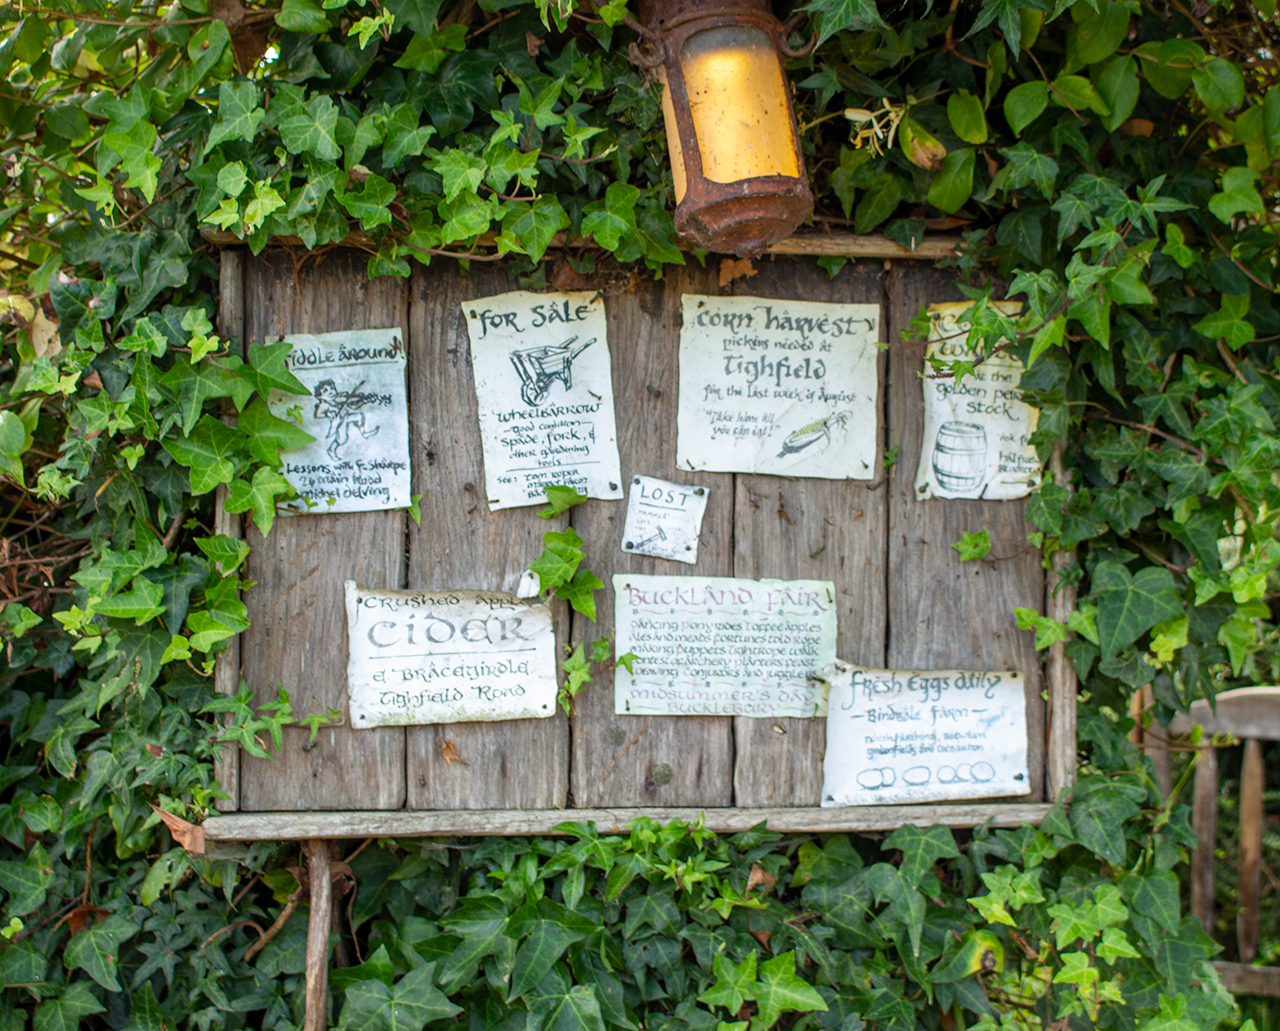 fiddle Around
Lessons, with F. Sharpe
24 main Road
michel delving
FOR SALE
WHEELBARROW
good condition
Spade, fork, &
other gardening
tools
See: Tom Roper
CORN HARVEST
pickers needed at
Tighfield
for the last week of August
"Take home all
you can eat!"
at the
golden perch
STOCK
LOST
HAMMER!
CRUSHED Apple
CIDER
E. BRACEGIRDLE
Tighfield Road
BUCKLAND FAIR
DANCING PONY RIDES TOFFEE APPLES
ALES AND MEADS FORTUNES TOLD ROPE
MAKING PUPPETS TIGHTROPE WALK
CONTEST OF ARCHERY PLANTERS FEAST
WEAVING CONJURORS AND JUGGLERS
MIDSUMMER'S DAY
BUCKLEBURY
FRESH Eggs daily
- Bindbale FARM -